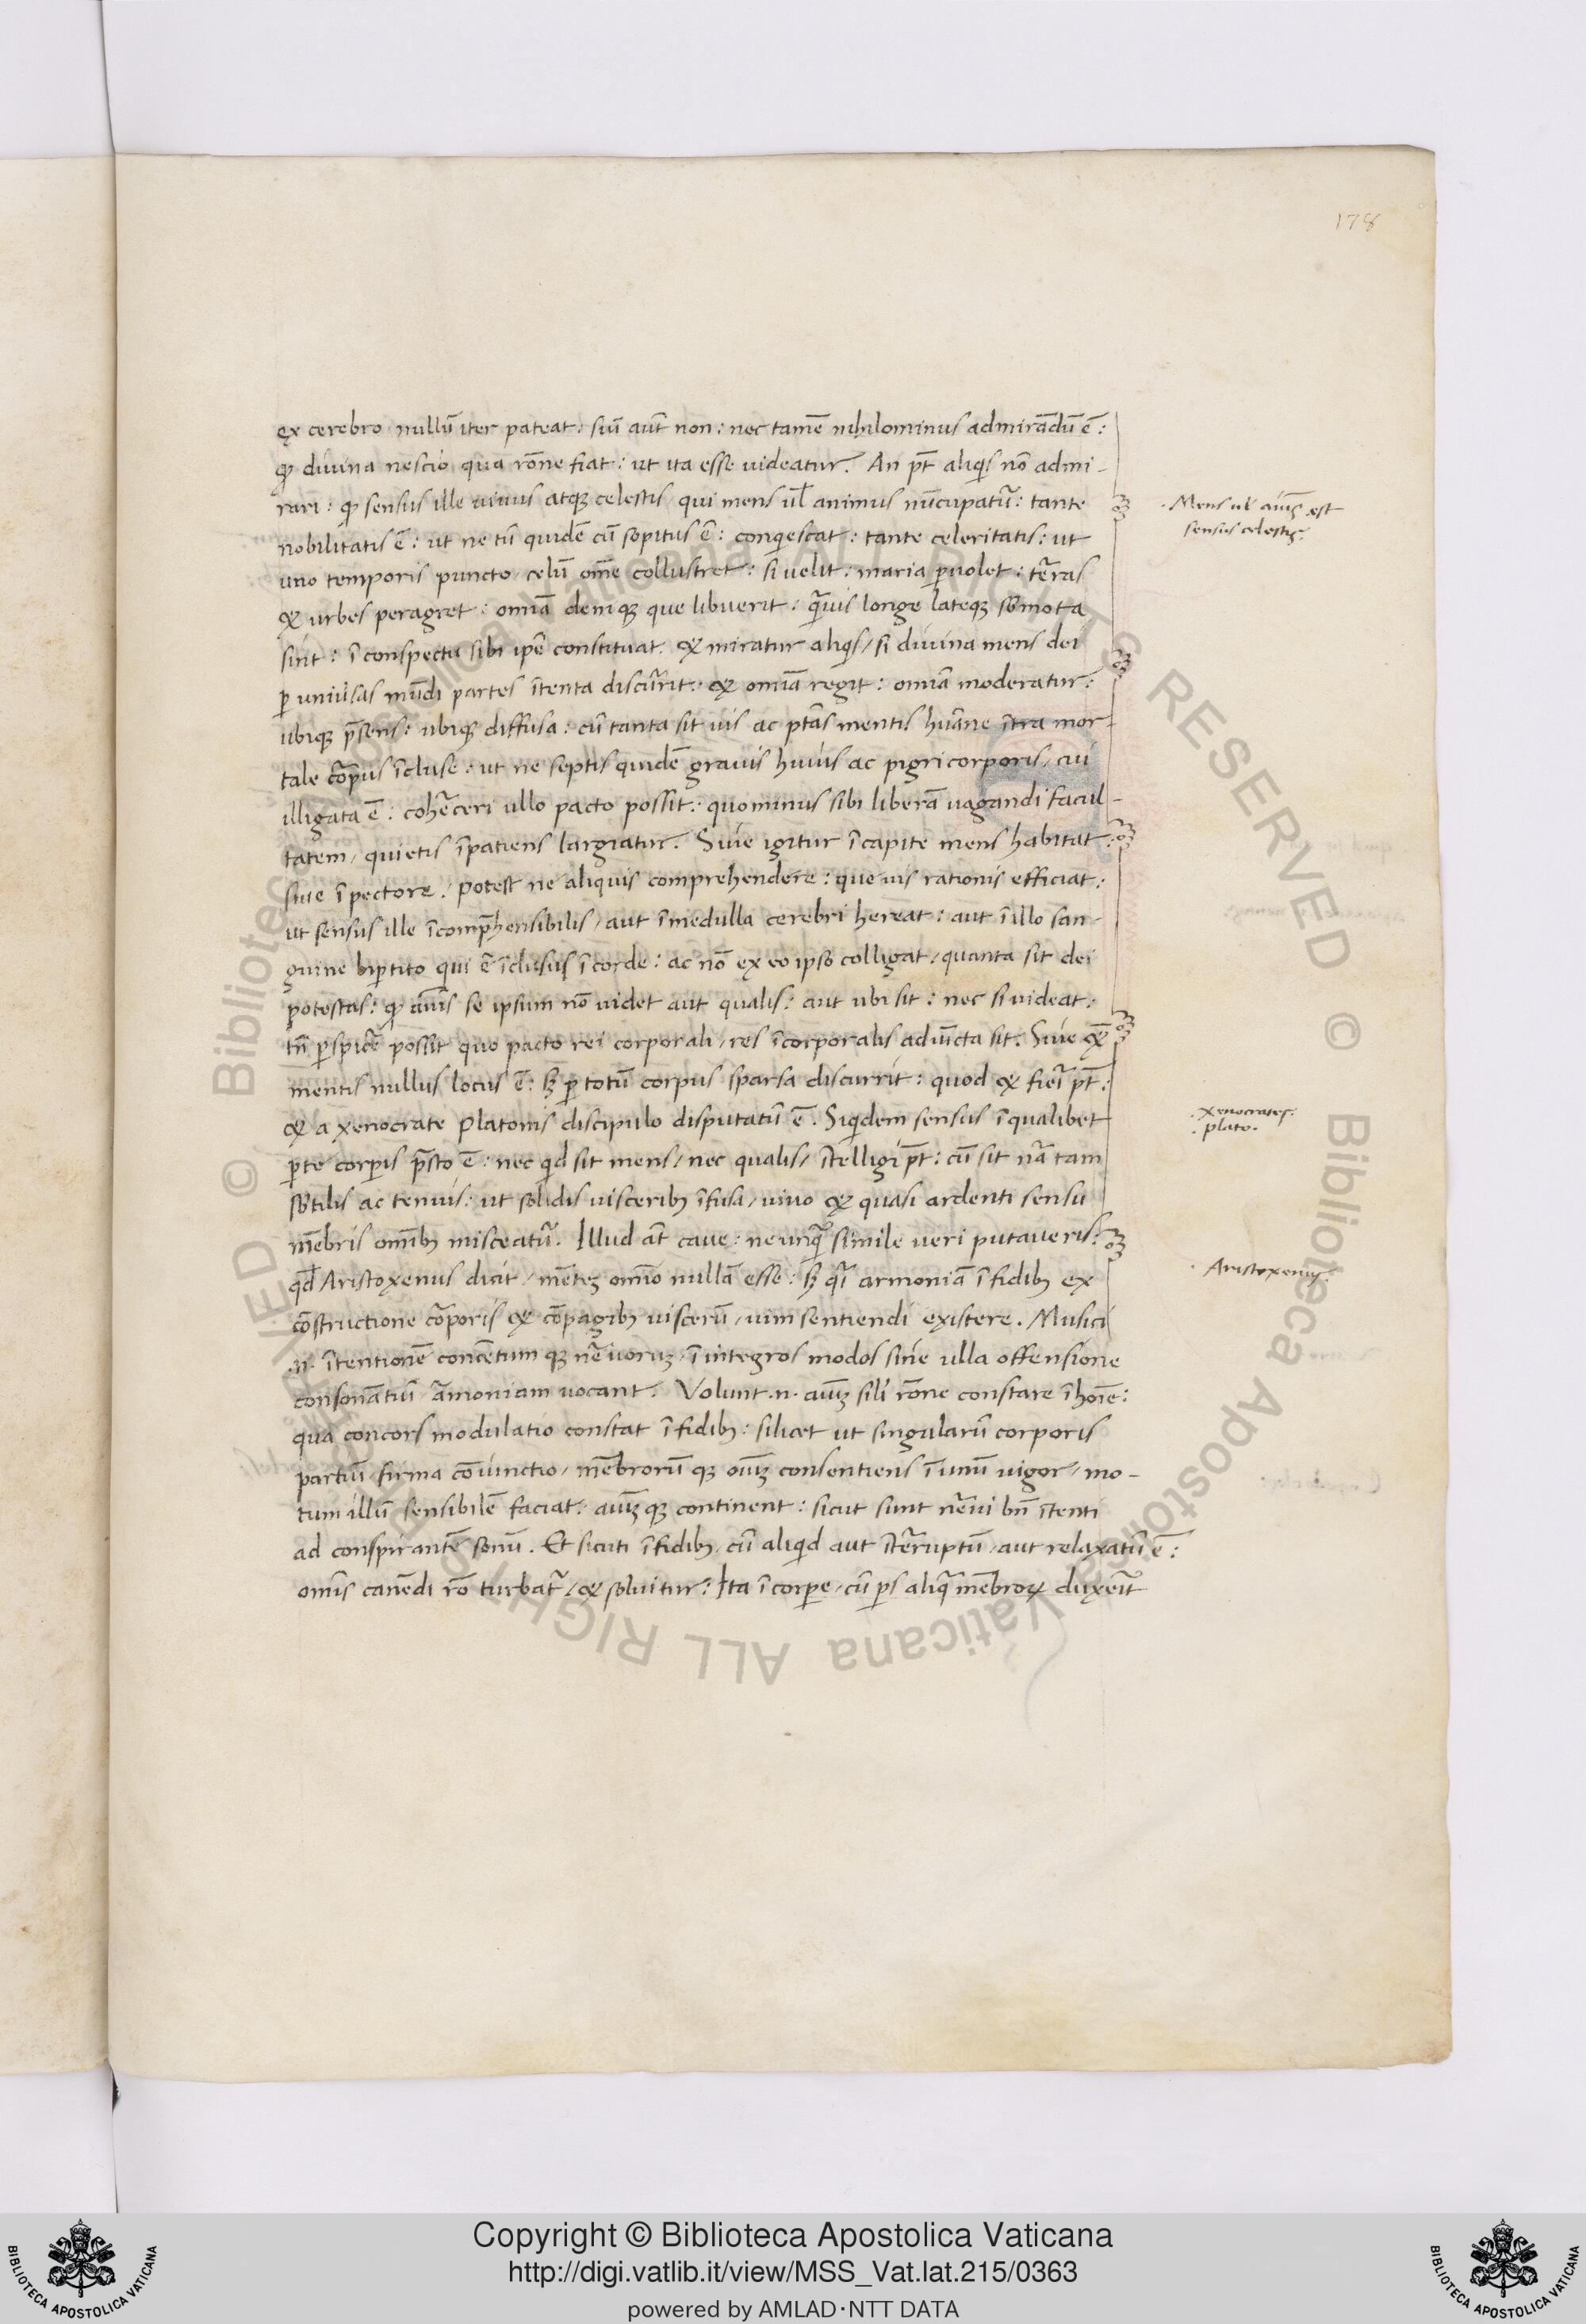 178
ex cerebro nullū iter pateat: siū aut̄ non: nec tamē nihilominus admirādū ē:
qđ divina nescio qua rōne fiat: ut ita esse uideatur. An pt̄ aliqis nō admi-
rari: qđ sensus ille uiuus atqꝫ celestis qui mens ul̄ animus nūcupatur̄: tante
nobilitatis ē: ut ne tū quidē cū sopitus ē: conqiescat: tante celeritatis: ut
uno temporis puncto celū om̄e collustret: si uelit: maria ꝑuolet: tr̄as
& urbes peragret: omīa deniqꝫ que libuerit: qr̄uis longe lateqꝫ sūmota
sint: ī conspectu sibi ipse constituat. & miratur aliqis / si diuina mens dei
ꝑ uniūsas mūdi partes ītenta discurrit: & omīa regit: omīa moderatur:
ubiqꝫ p̄sens: ubiqꝫ diffusa: cū tanta sit uis ac ptās mentis huāne ītra mor-
tale cōrpus īcluse: ut ne septis quidē grauis huius ac pigri corporis / cui
illigata ē: cohērceri ullo pacto possit: quominus sibi liberā uagandi facul-
tatem / quietis īpatiens largiatur. Siue igitur ī capite mens habitat:
siue ī pectore. potest ne aliquis comprehendere: que uis rationis efficiat:
ut sensus ille īcomp̄hensibilis / aut ī medulla cerebri hereat: aut ī illo san-
guine biꝑtito qui ē īclusus ī corde: ac nō ex eo ipso colligat / quanta sit dei
potestas: qđ aīus se ipsum nō uidet aut qualis: aut ubi sit: nec si uideat:
tn̄ ꝑspicē possit quo pacto rei corporali / res īcorporalis adiūcta sit. Siue &̄
mentis nullus locus ē: sꝫ ꝑ totū corpus sparsa discurrit: quod & fieri pt̄:
& a xenocrate Platonis discipulo disputatū ē. Siqidem sensus ī qualibet
ꝑte corꝑis p̄sto ē: nec qid sit mens / nec qualis / ītelligi pt̄: cū sit nr̄a tam
sb̄tilis ac tenuis: ut solidis uisceribꝫ īfusa / uiuo & quasi ardenti sensu
mēbris omībꝫ misceatur̄. Illud at̄ caue: ne unqr̄ simile ueri putaueris:
qđ Aristoxenus dicit / mēteꝫ omīo nullā esse: sꝫ qr̄i armoniā ī fidibꝫ ex
cōstructione cōrporis & cōpagibꝫ uiscerū / uim sentiendi existere. Musici
.n. ītentionē concētum qꝫ nēruoruꝫ / ī integros modos sine ulla offensione
consonātiū āmoniam uocant. Volunt .n. aīuꝫ sil̄i rōne constare ī hoīe:
qua concors modulatio constat ī fidibꝫ: silicet ut singularū corporis
partiū firma cōiunctio / mēbrorū qꝫ oīuꝫ consentiens ī unū uigor / mo-
tum illū sensibilē faciat: aīuꝫ qꝫ continent: sicut sunt nērui bn̄ ītenti
ad conspirantē sonū. Et sicuti ī fidibꝫ / cū aliqid aut īterruptū / aut relaxatū ē:
omīs canēdi rō turbatr̄ / & soluitur: Ita ī corꝑe / cū ꝑs aliqr̄ mēbroꝝ duxeīt
. Mens ul̄ aīuꝫ est
sensus celestis.
. Xenocrates:
. plato.
. Aristoxenus.
Copyright © Biblioteca Apostolica Vaticana
http://digi.vatlib.it/view/MSS_Vat.lat.215/0363
powered by AMLAD·NTT DATA
BIBLIOTECA APOSTOLICA VATICANA
BIBLIOTECA APOSTOLICA VATICANA
© Biblioteca Apostolica Vaticana ALL RIGHTS RESERVED © Biblioteca Apostolica Vaticana ALL RIGHTS RESERVED